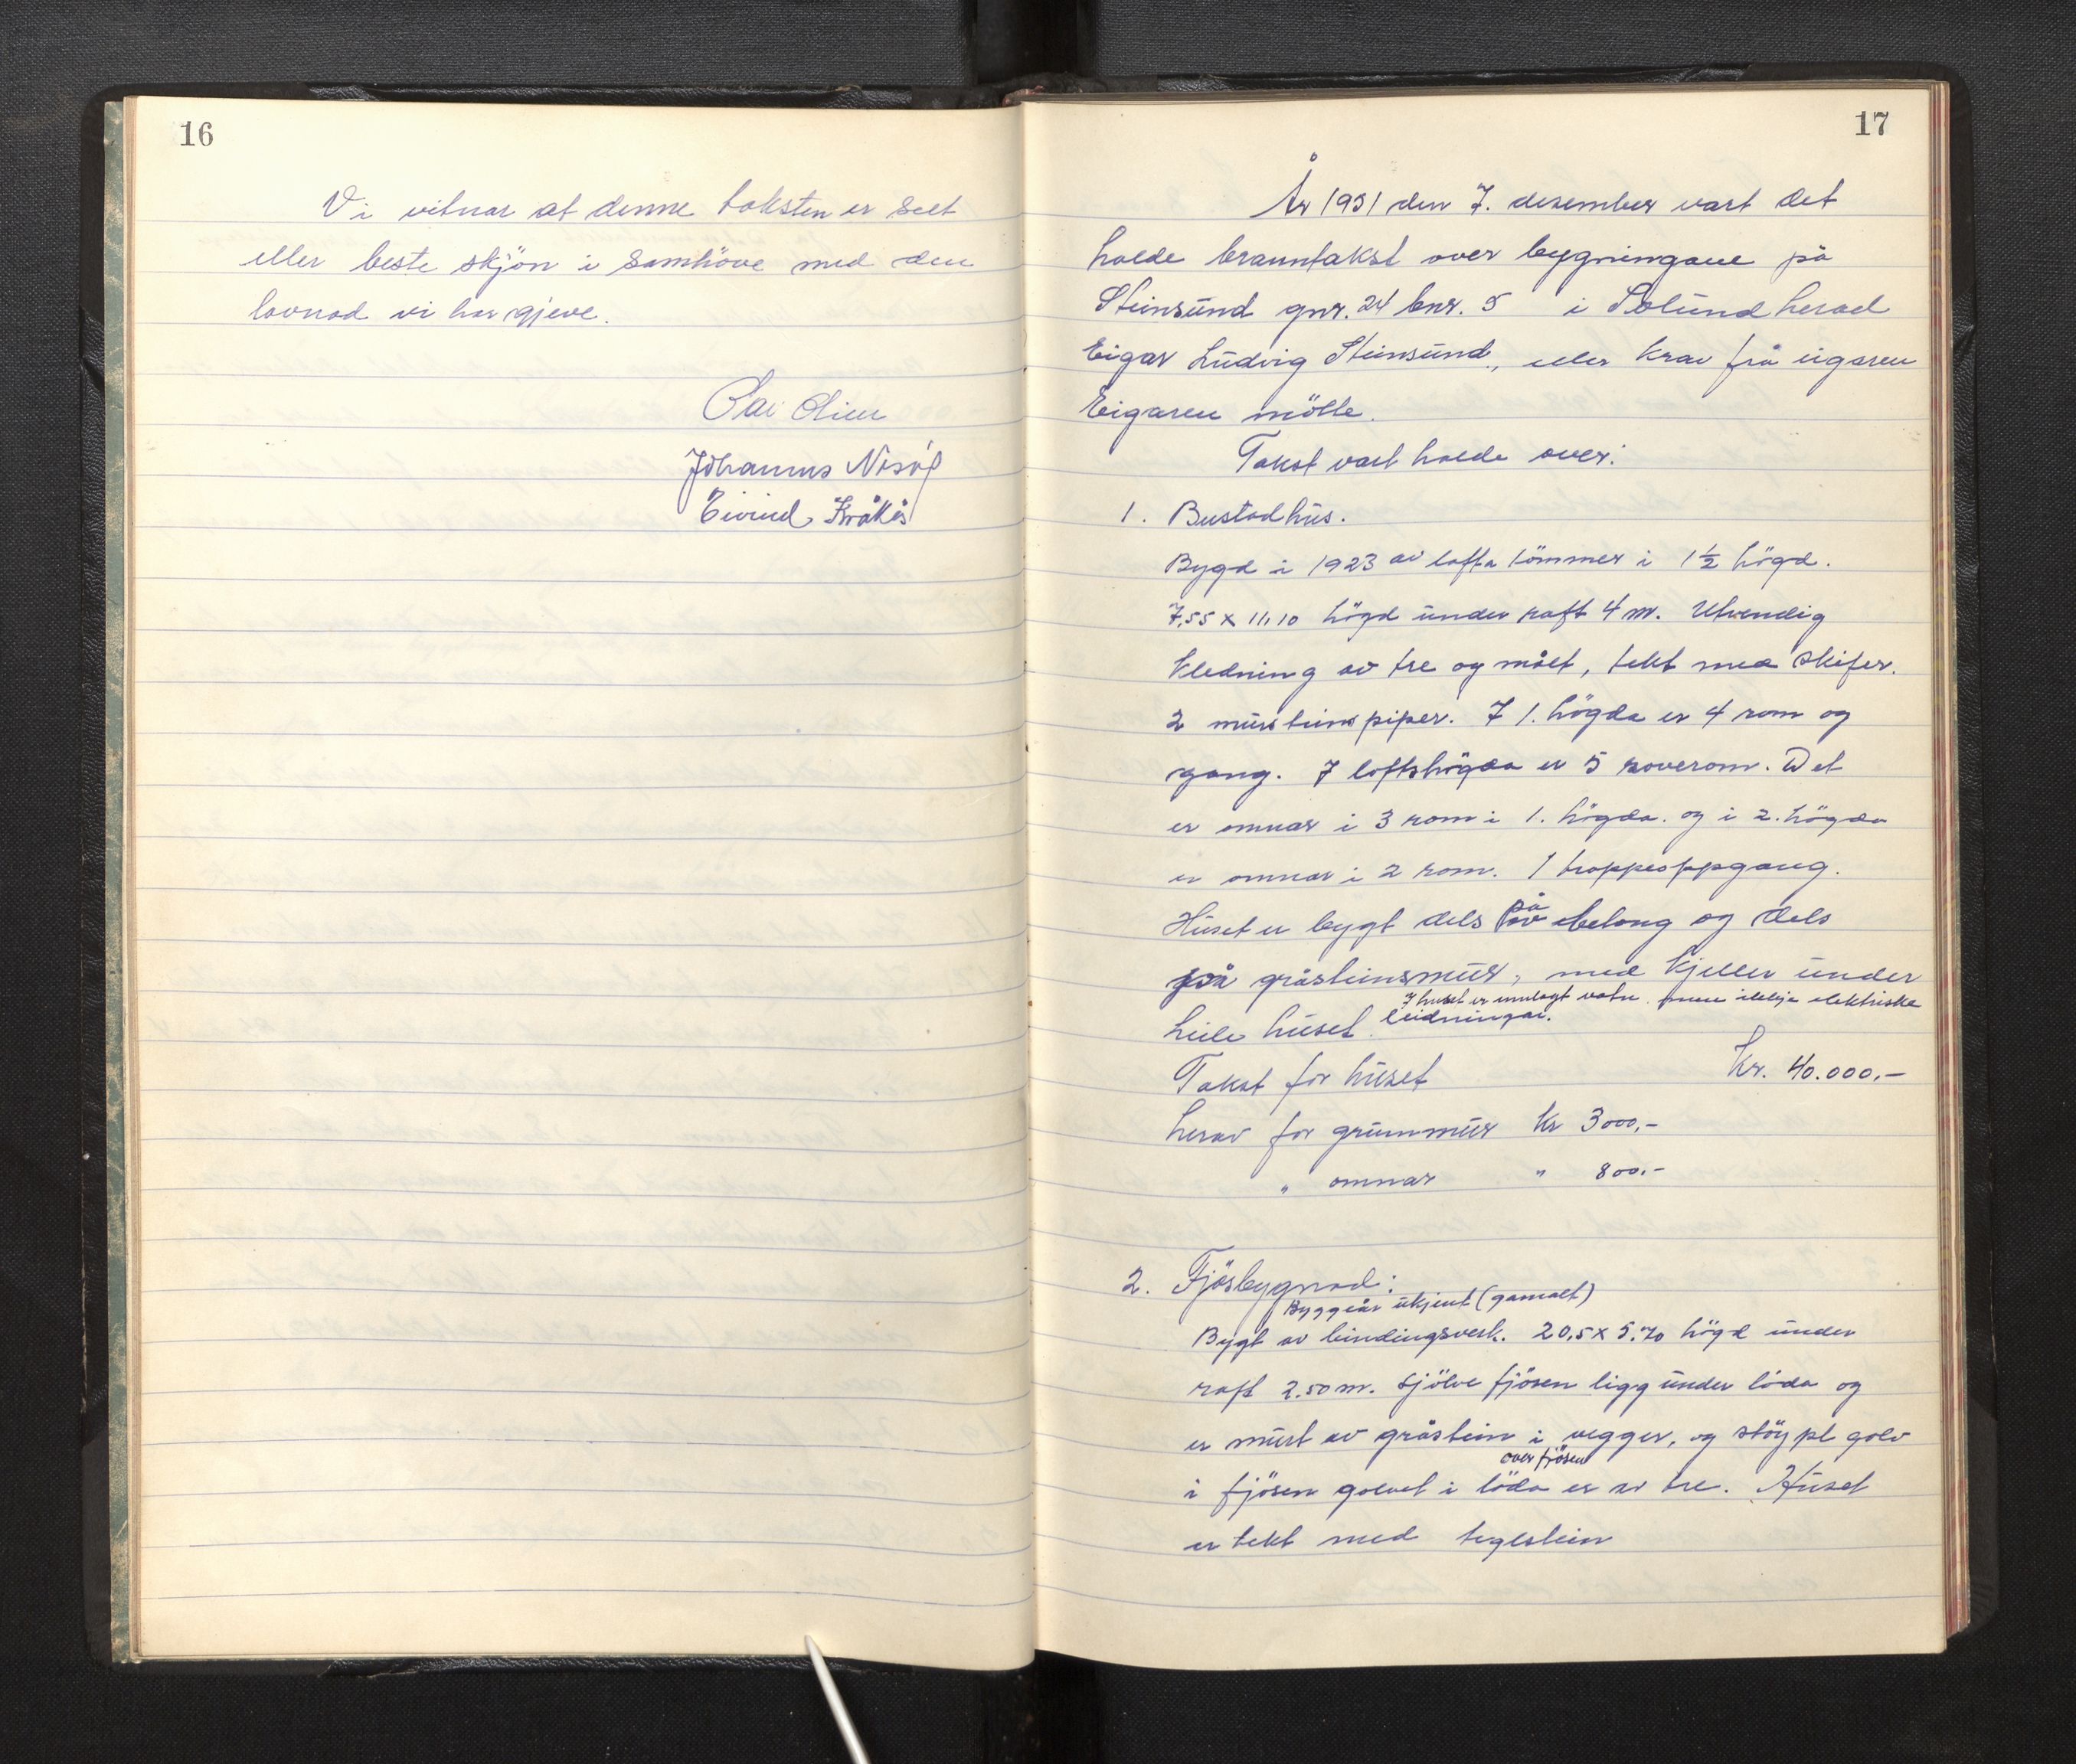 16
Vi vitnar at denne taksten er sett
etter beste skjön i samhöve med den
lovnad vi har gjeve.
Johannes
Eivind Kråkås
17
År 1951 den 7. desember vart det
halde branntakst over bygningane på
Steinsund gnr. 24 bnr. 5 i Solund herad
Eigar Ludvig Steinsund, etter krav frå eigaren
Eigaren mötte.
Takst vart halde over:
1. Bustadhus.
Bygd i 1923 av lafta tömmer i 1½ högd.
7,55 x 11,10 högd under raft 4 m. Utvendig
kledning av tre og målt, tekt med skifer.
2 mursteinspiper. I 1. högda er 4 rom og
gang. I loftshögda er 5 soverom. Det
er omnar i 3 rom i 1. högda. og i 2. högda
er omnar i 2 rom. 1 trappeoppgang.
Huset er bygt dels på betong og dels
på gråsteinsmur, med kjeller under
I huset er innlagt vatn men ikkje elektriske
heile huset. leidningar.
Takst for huset Kr. 40.000,-
herav for grunnmur kr 3000,-
" omnar " 800,-
2. Fjösbygnad:
Byggeår ukjent (gamalt)
Bygt av bindingsverk. 20,5 x 5,70 högd under
raft 2.50 m. Sjölve fjösen ligg under löda og
er murt av gråstein i vegger, og stöypt golv
over fjösen
i fjösen golvet i löda er av tre. Huset
er tekt med teglstein